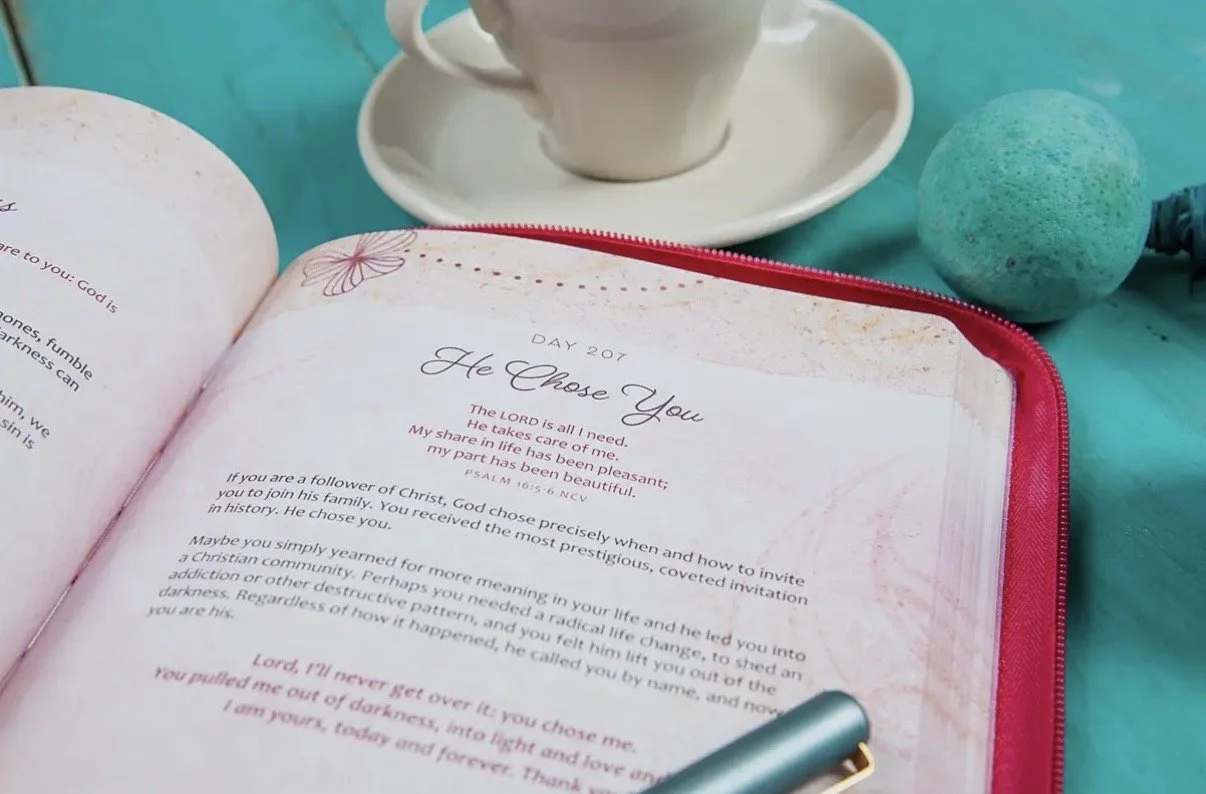 s
are to you: God is
ones, fumble
arkness can
him, we
sin is
DAY 207
He Chose You
The LORD is all I need.
He takes care of me.
My share in life has been pleasant;
my part has been beautiful.
PSALM 16:5-6 NCV
If you are a follower of Christ, God chose precisely when and how to invite
you to join his family. You received the most prestigious, coveted invitation
in history. He chose you.
Maybe you simply yearned for more meaning in your life and he led you into
a Christian community. Perhaps you needed a radical life change, to shed an
addiction or other destructive pattern, and you felt him lift you out of the
darkness. Regardless of how it happened, he called you by name, and now
you are his.
Lord, I'll never get over it: you chose me.
You pulled me out of darkness, into light and love and
I am yours, today and forever. Thank